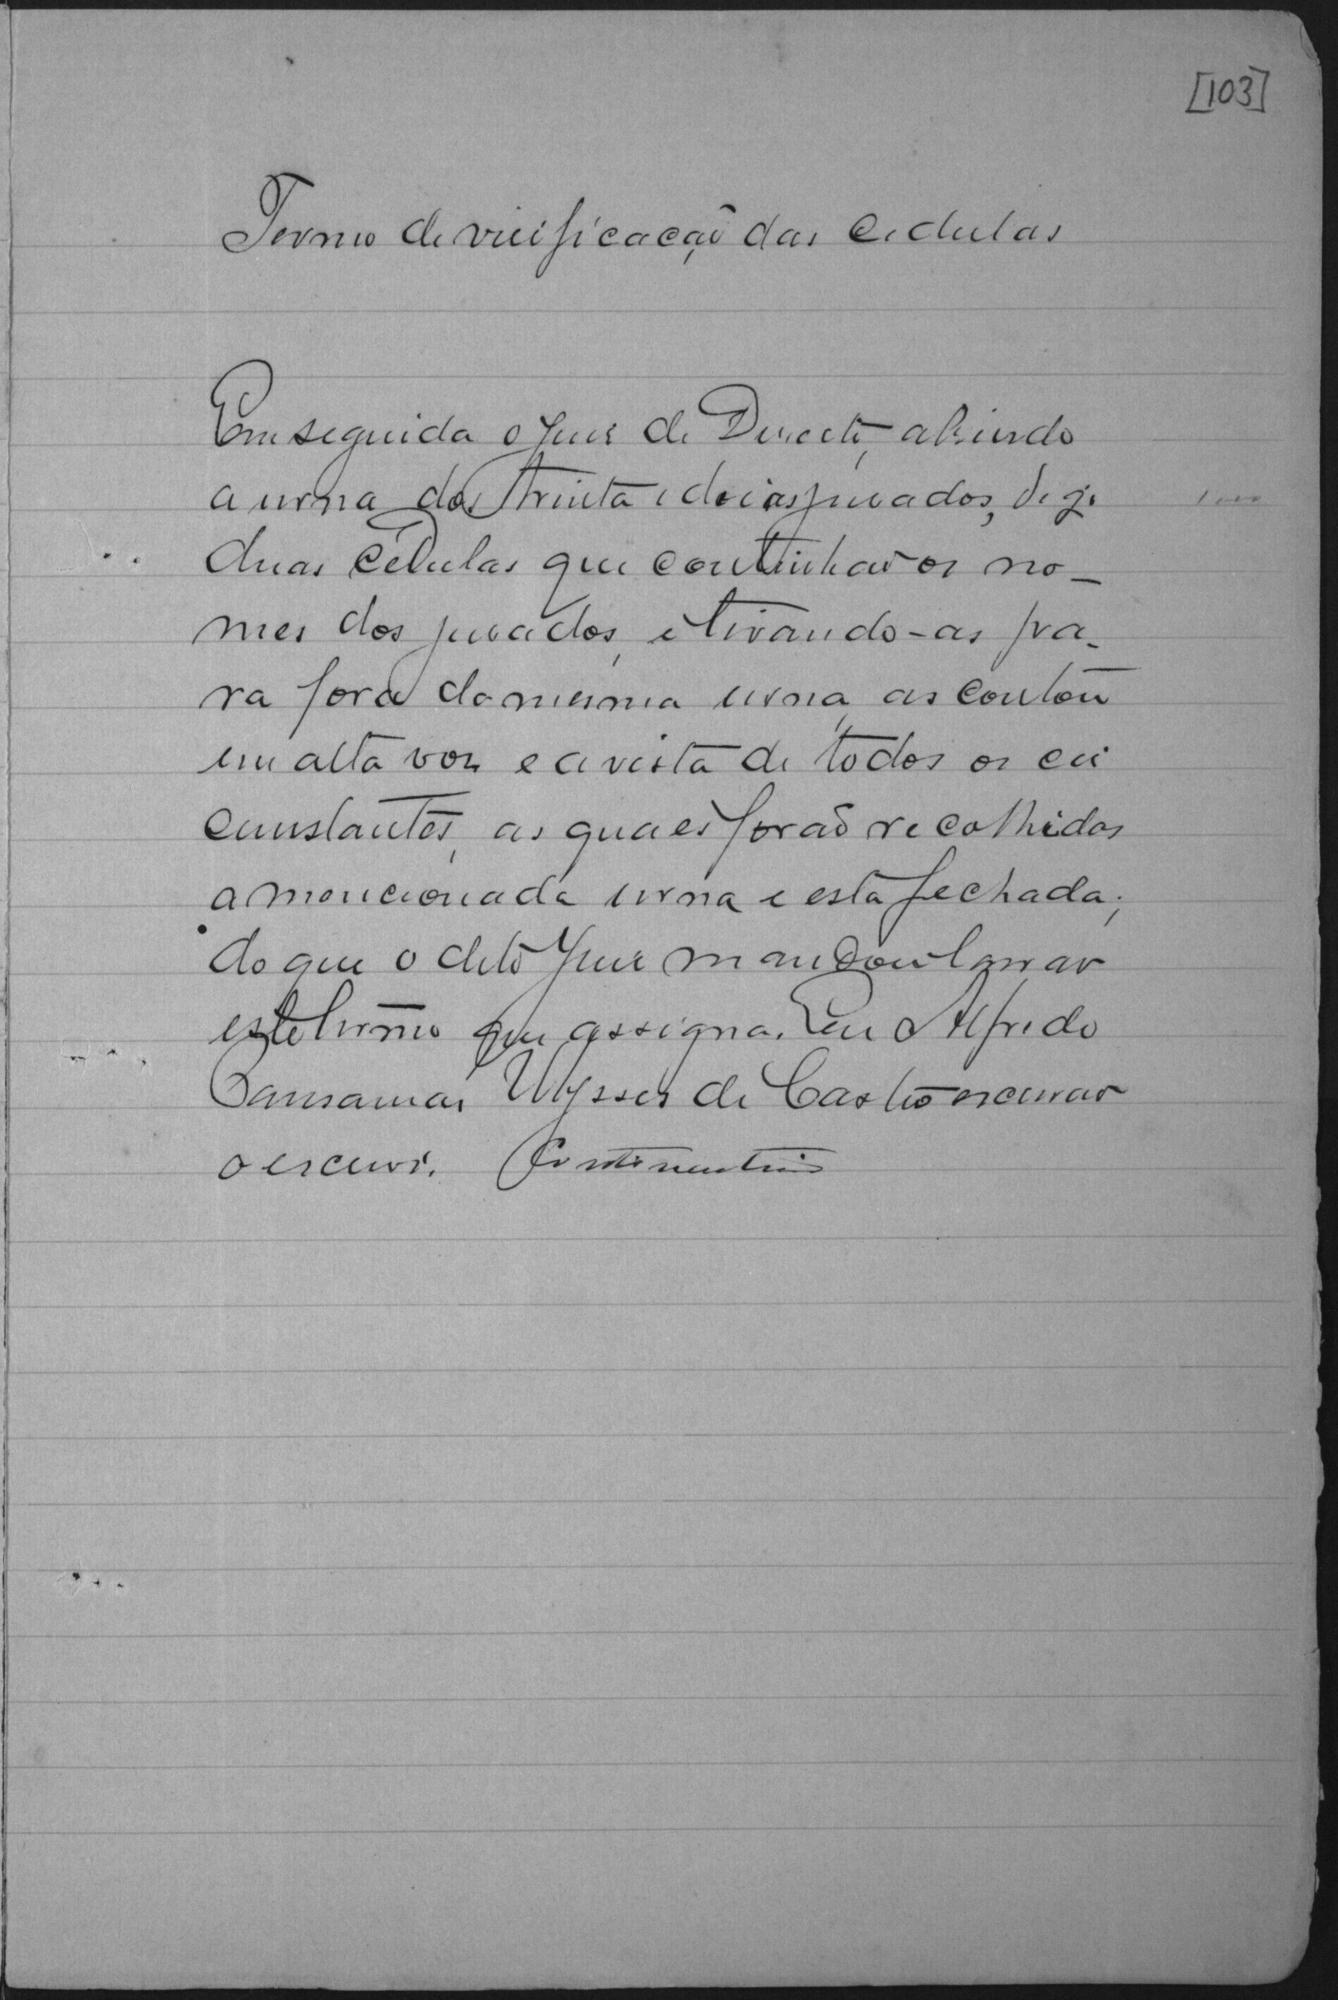 [103]
Termo de virificação das cedulas
Em seguida o Juiz de Direito, abrindo
a urna dos trinta e dois jurados,
duas cédulas que continhão os no-
mes dos jurados, e tirando-as pa-
ra fora da mesma urna, as contou
em alta voz e a vista de todos os cir
cunstantes, as quaes forão recolhidas
a mencionada urna e esta fechada;
do que o dito Juiz mandou lavrar
este termo que assigna. Eu Alfredo
Ulysses de Castro escrivão
o escrevi.